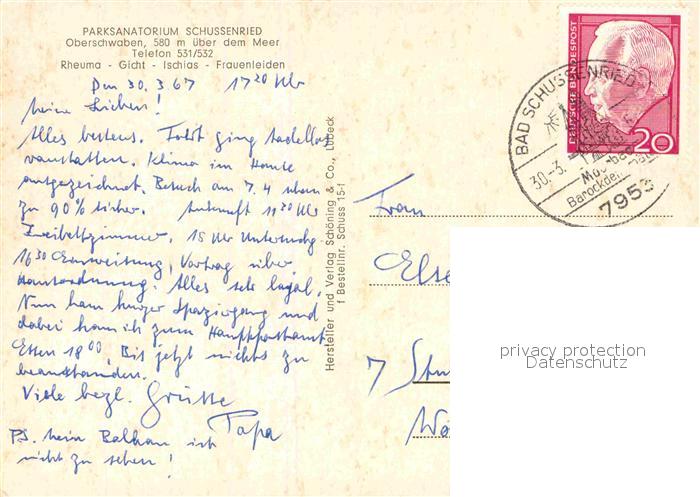 PARKSANATORIUM SCHUSSENRIED
Oberschwaben, 580 m über dem Meer
Telefon 531/532
Rheuma - Gicht - Ischias - Frauenleiden
Den 30.3.67 17 20 Uhr
Meine Lieben!
Alles bestens. Fahrt ging tadellos
vonstatten. Klima im Hause
ausgezeichnet. Besuch am 7.4 schon
zu 90% sicher. Ankunft 11 20 Uhr
Zweibettzimmer. 15 Uhr Untersuchg.
16 30 Einweisung, Vortrag über
Hausordnung. Alles sehr
Nun kurzer Spaziergang und
dabei komm ich zum Hauptpostamt
Essen 18 00. Bis jetzt nichts zu
beanstanden.
Viele Grüsse
Papa
PS. kein Balkon ist
nicht zu sehen!
Hersteller und Verlag Schöning & Co., Lübeck
f Bestellnr. Schuss 15-1
DEUTSCHE BUNDESPOST
20
BAD SCHUSSENRIED
30.-3.
Barockde
7953
Frau
Else
7 Stu
privacy protection
Datenschutz